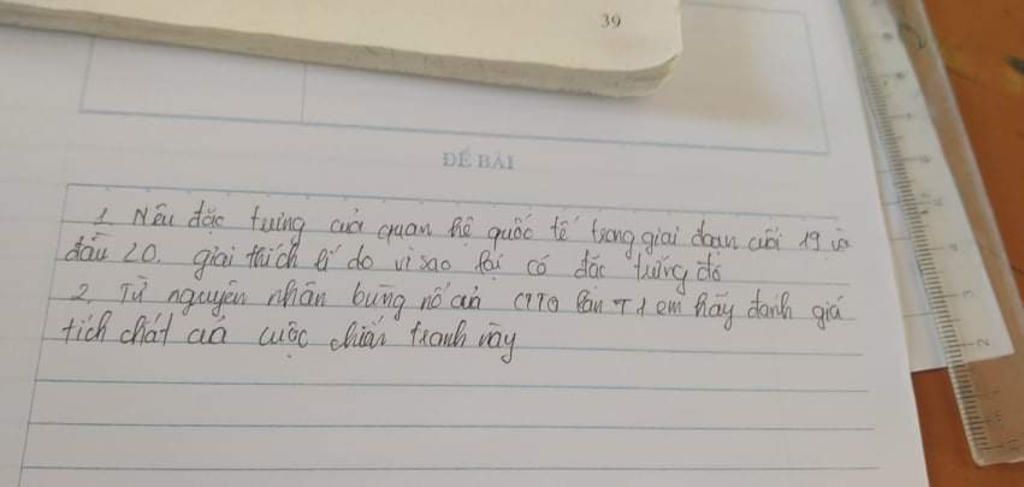 39
ĐỀ BÀI
1. Nêu đặc trưng của quan hệ quốc tế trong giai đoạn cuối 19 và
đầu 20. giải thích lí do vì sao lại có đặc trưng đó
2. Từ nguyên nhân bùng nổ của CTTG lần T1 em hãy đánh giá
tích chất của cuộc chiến tranh này